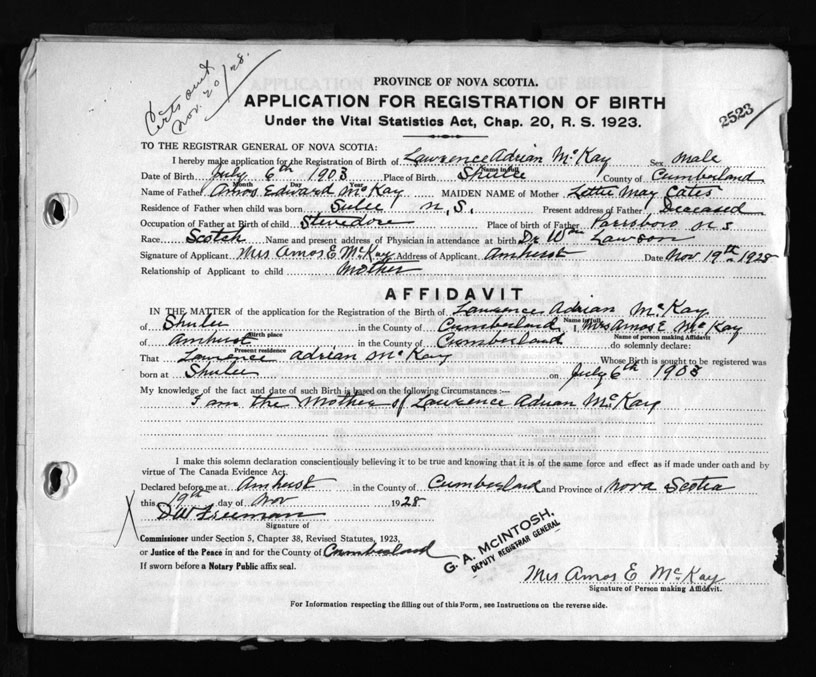 Certs out
Nov. 20/28.
2523
PROVINCE OF NOVA SCOTIA.
APPLICATION FOR REGISTRATION OF BIRTH
Under the Vital Statistics Act, Chap. 20, R. S. 1923.
TO THE REGISTRAR GENERAL OF NOVA SCOTIA:
I hereby make application for the Registration of Birth of Lawrence Adrian McKay Sex Male
Name in full
Date of Birth July 6th 1903 Place of Birth Shulee County of Cumberland
Month Day Year
Name of Father Amos Edward McKay MAIDEN NAME of Mother Lettie May Cates
Residence of Father when child was born Sulee N.S. Present address of Father Deceased
Occupation of Father at Birth of child Stevedore Place of birth of Father Parrsboro N.S
Race Scotch Name and present address of Physician in attendance at birth Dr Wm Lawson
Signature of Applicant Mrs Amos E. McKay Address of Applicant Amherst Date Nov 19th 1928
Relationship of Applicant to child Mother
AFFIDAVIT
IN THE MATTER of the application for the Registration of the Birth of Lawrence Adrian McKay
Name in full
of Shulee in the County of Cumberland, I, Mrs Amos E McKay
Birth place Name of person making Affidavit
of Amherst in the County of Cumberland do solemnly declare:
Present residence
That Lawrence Adrian McKay Whose Birth is sought to be registered was
born at Shulee on July 6th 1903
My knowledge of the fact and date of such Birth is based on the following Circumstances :—
I am the Mother of Lawrence Adrian McKay
I make this solemn declaration conscientiously believing it to be true and knowing that it is of the same force and effect as if made under oath and by
virtue of The Canada Evidence Act.
Declared before me at Amherst in the County of Cumberland and Province of Nova Scotia
this 19th day of Nov 1928
X DW Freeman
Signature of
Commissioner under Section 5, Chapter 38, Revised Statutes, 1923,
or Justice of the Peace in and for the County of Cumberland
If sworn before a Notary Public affix seal.
G. A. McINTOSH,
DEPUTY REGISTRAR GENERAL
Mrs Amos E McKay
Signature of Person making Affidavit.
For Information respecting the filling out of this Form, see Instructions on the reverse side.